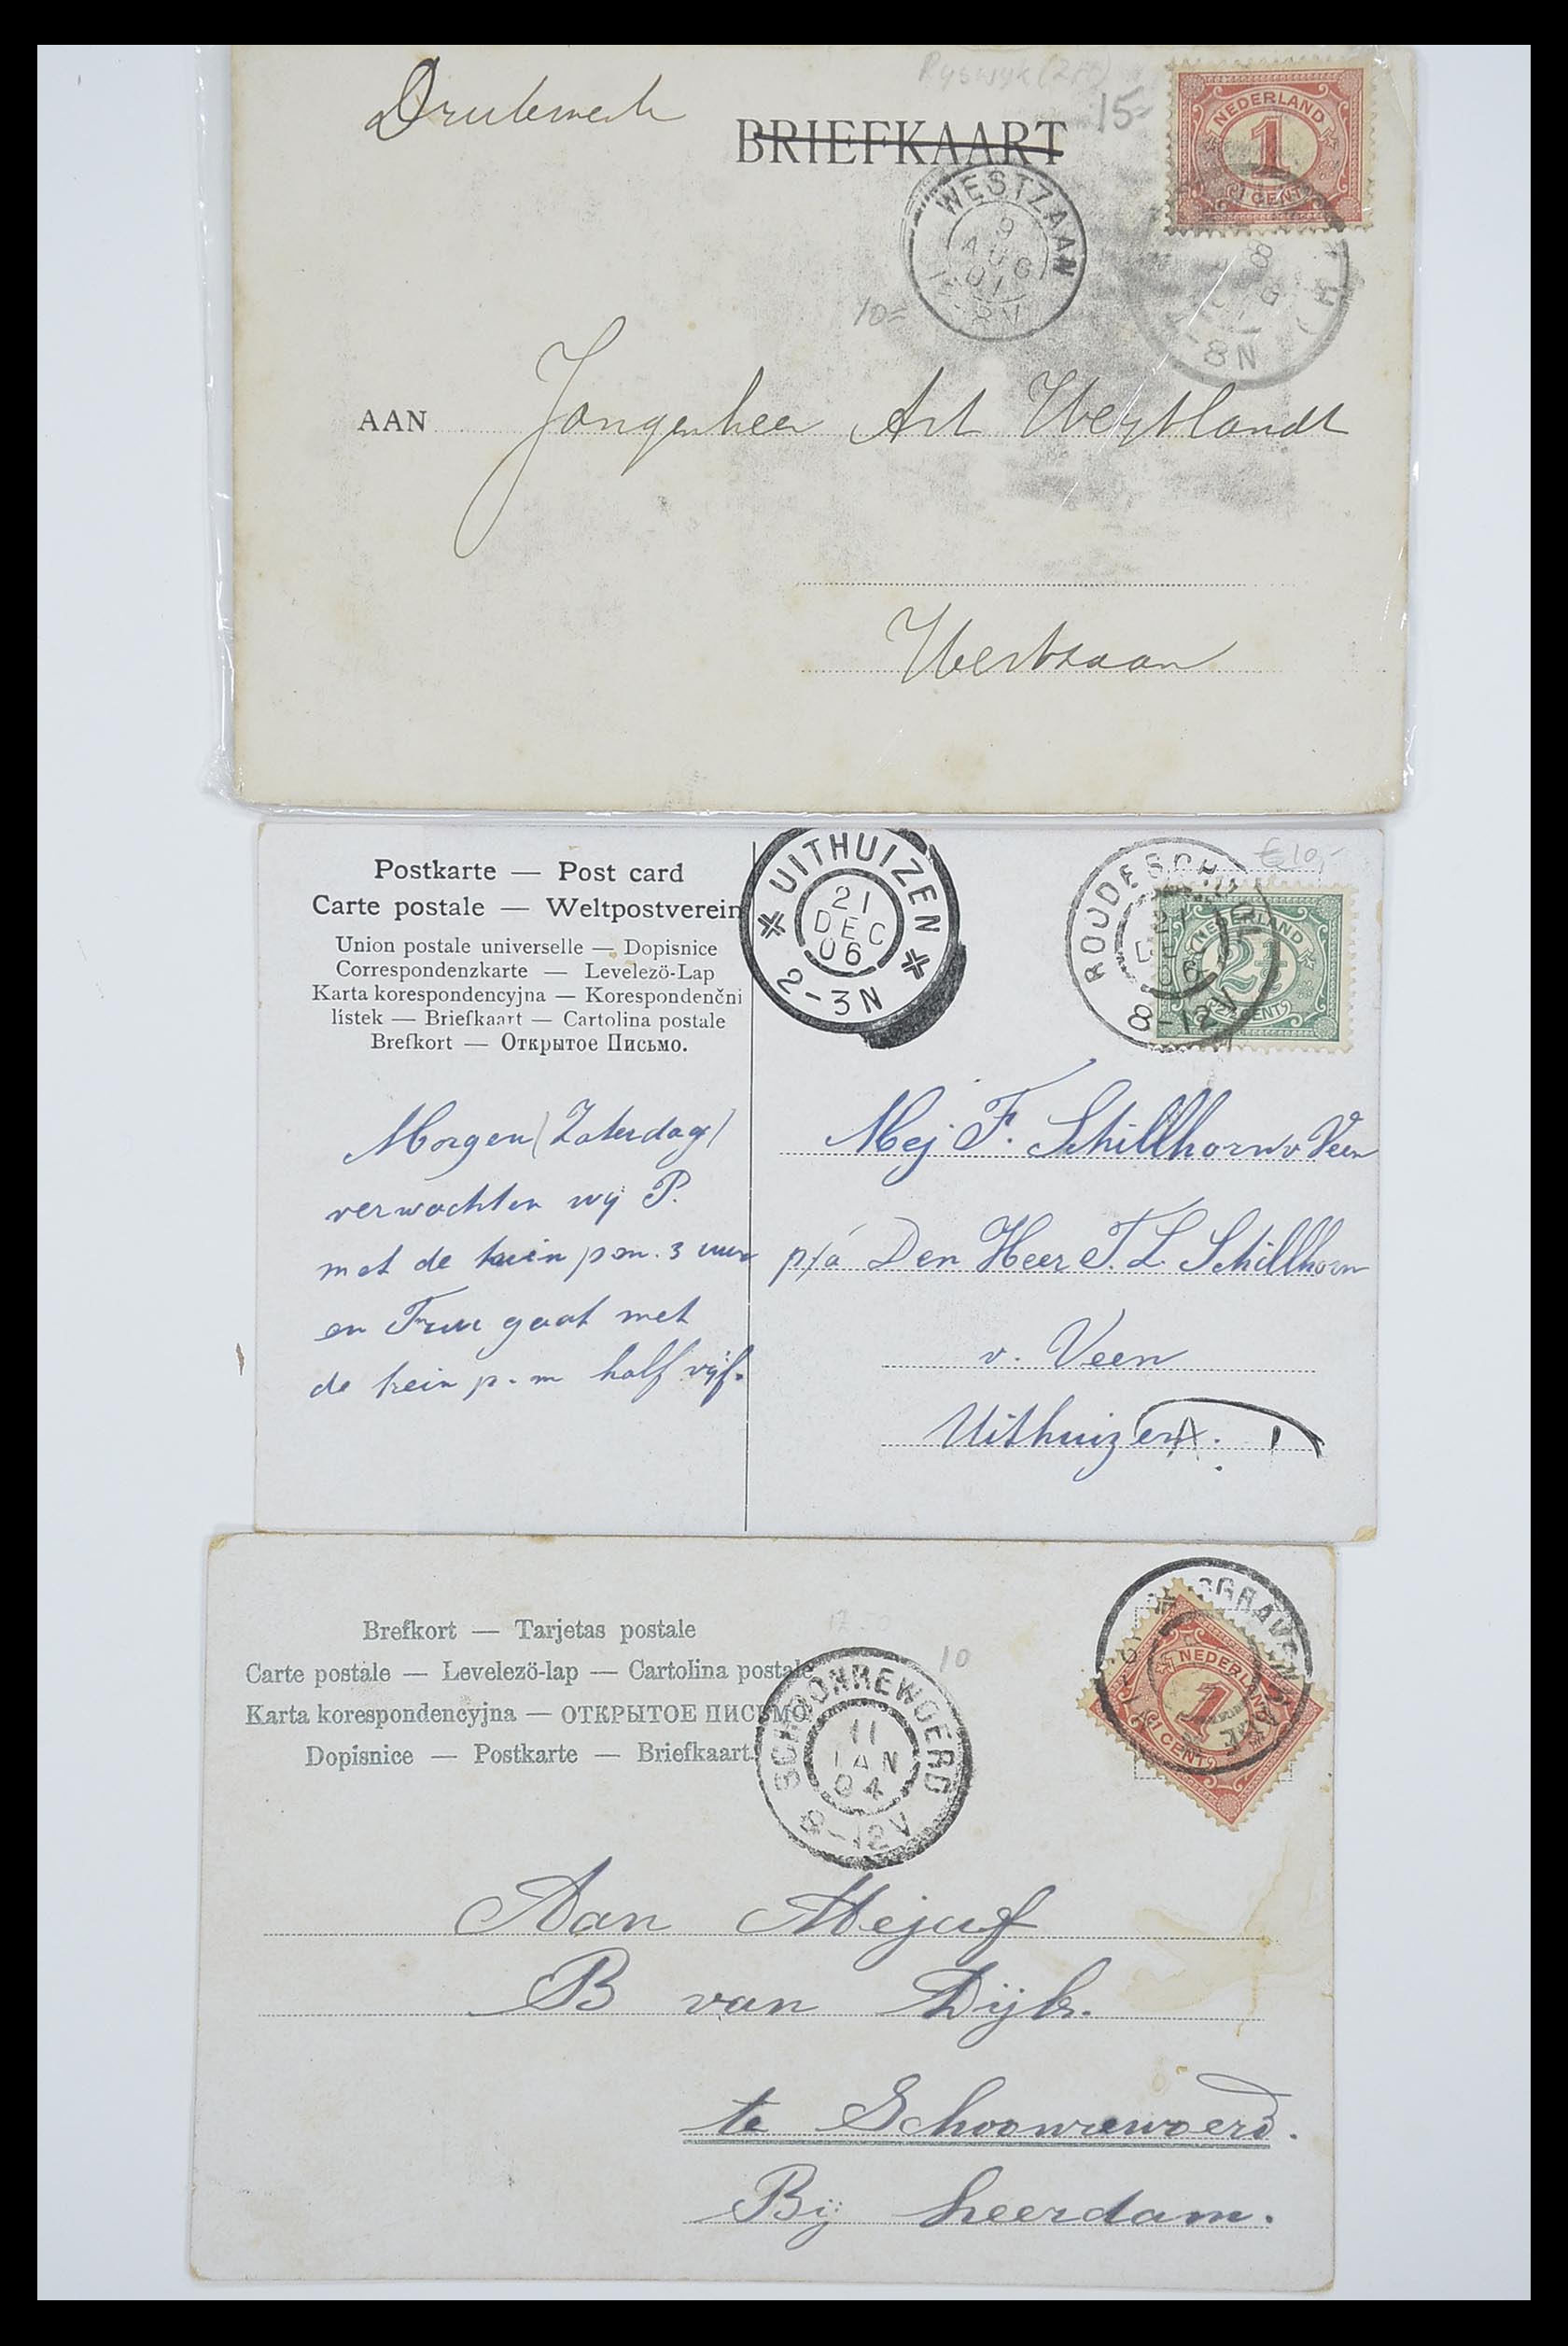 Ryswyk (Z.H)
15=
Drukwerk
BRIEFKAART
NEDERLAND
1
1 CENT
WESTZAAN
9
AUG
01
8V
8
8N
10=
AAN Jongenheer Art Weytlandt
Westzaan
Postkarte — Post card
Carte postale — Weltpostverein
Union postale universelle — Dopisnice
Correspondenzkarte — Levelezö-Lap
Karta korespondencyjna — Korespondenčni
lístek — Briefkaart — Cartolina postale
Brefkort — Открытое Письмо.
UITHUIZEN
21
DEC
06
2-3N
€10,-
ROODESCHO
21
DEC
06
8-12V
NEDERLAND
2½
2½ CENT
Morgen (Zaterdag)
verwachten wij P.
met de trein p.m. 3 uur
en Truu gaat met
de trein p.m half vijf.
Mej F. Schillhorn v Veen
p/a Den Heer T. L. Schillhorn
v. Veen
Uithuizen.
Brefkort — Tarjetas postale
Carte postale — Levelezö-lap — Cartolina postale
Karta korespondencyjna — ОТКРЫТОЕ ПИСЬМО
Dopisnice — Postkarte — Briefkaart
10
SCHOONREWOERD
11
JAN
04
8-12V
'SGRAVENHAGE
NEDERLAND
1
1 CENT
Aan Mejuf
B van Dijk.
te Schoonrewoerd.
Bij Leerdam.